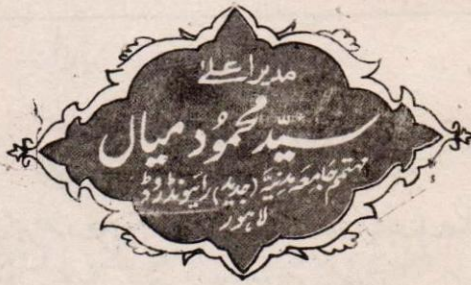 مدیر اعلےٰ
سیّد محمُود میاں
مہتمم جامعہ مدنیہ (جدید) رائیونڈ روڈ
لاہور